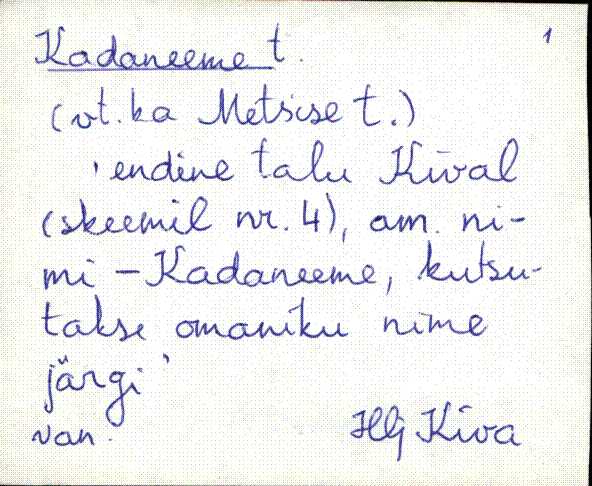 1
Kadaneeme t.
(vt. ka Metsise t.)
'endine talu Kival
(skeemil nr. 4), am. ni-
mi – Kadaneeme, kutsu-
takse omaniku nime
järgi'
van. Hlj Kiva